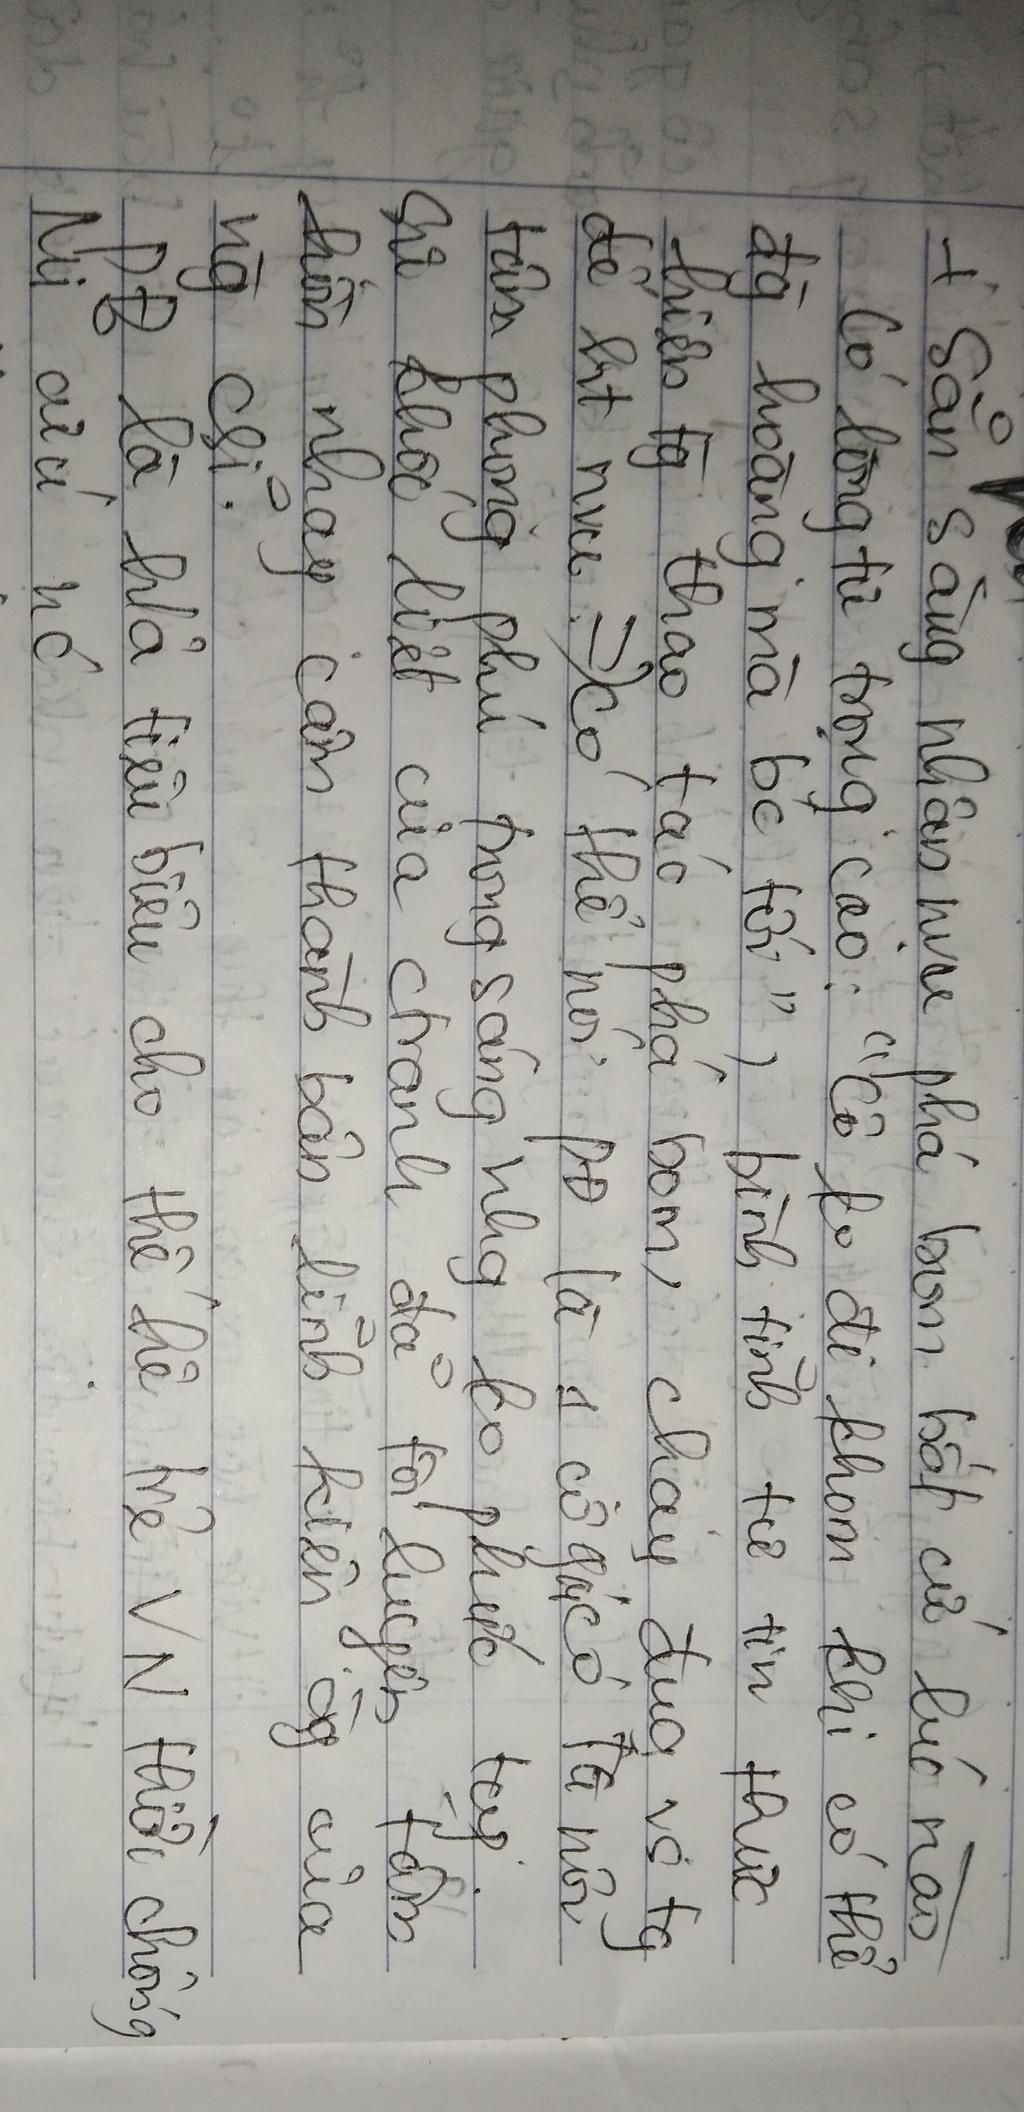 + Sẵn sàng nhận nvụ phá bom bất cứ lúc nào
Có lòng tự trọng cao: "Cô ko đi khom khi có thể
đg hoàng mà bc tới", bình tĩnh tự tin thực
hiện tg thao tác phá bom, chạy đua vs tg
để ht nvụ. => Có thể nói PĐ là 1 cô gái có
tâm phong phú trong sáng nhg ko phức tạp.
Sự khốc liệt của ctranh đã tôi luyện tâm
hồn nhạy cảm thành bản lĩnh kiên cg của
ng chị.
PĐ là hả tiêu biểu cho thế hệ trẻ VN thời chống
Mĩ cứu nc